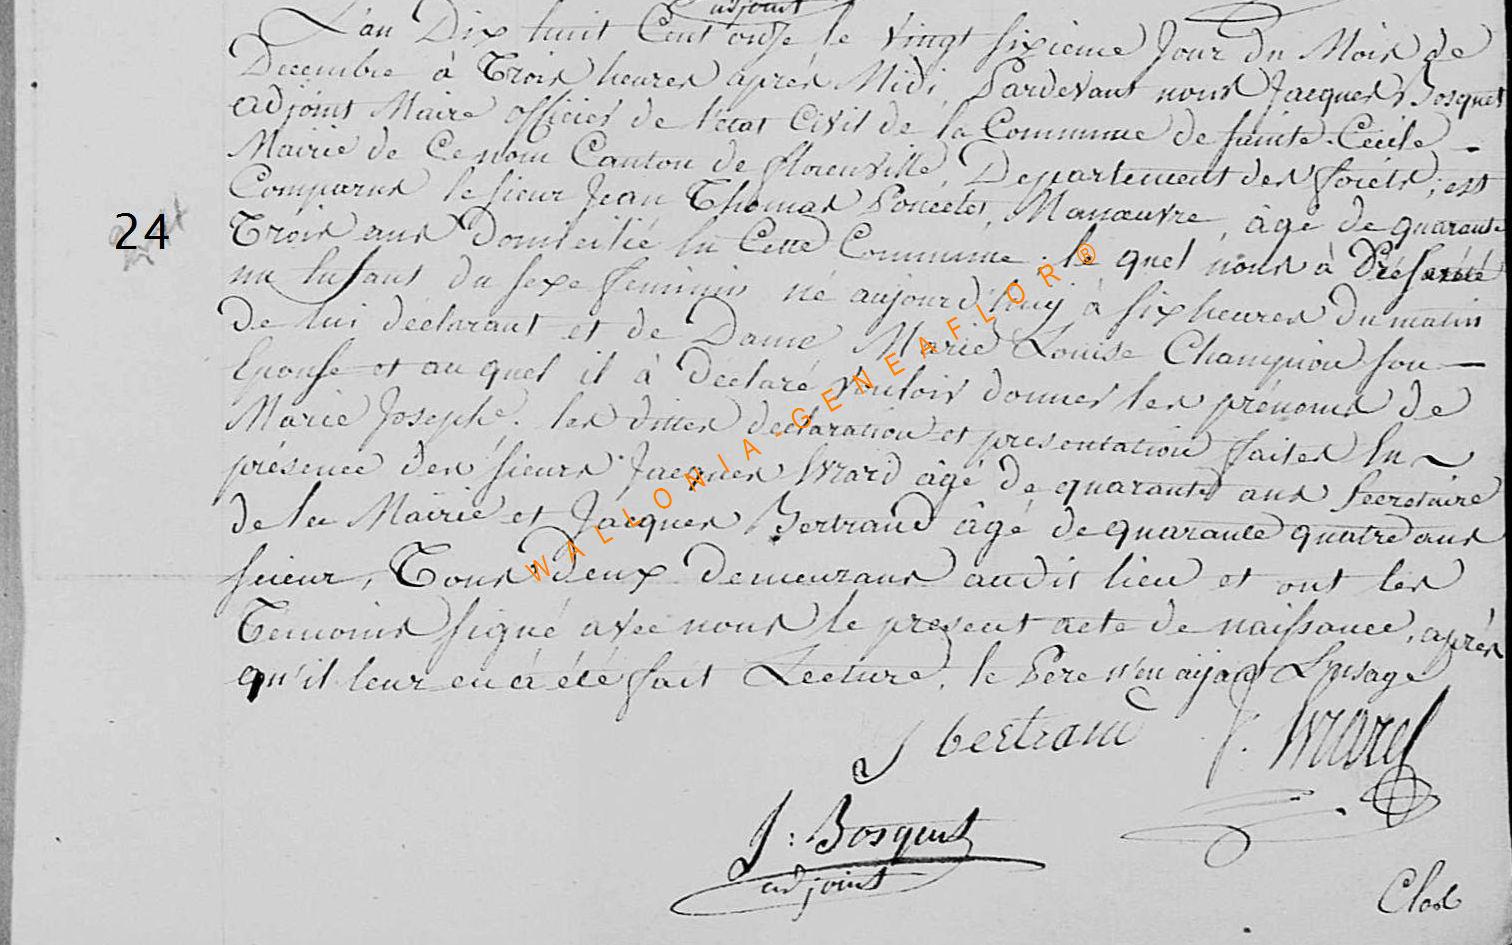 adjoint
L'an Dix huit Cent onze le vingt sixieme Jour du Mois de
Decembre à Trois heures après Midi, Pardevant nous Jacques Bosquet
adjoint Maire officier de l'état Civil de la Commune de Sainte-Cecile
Mairie de Ce nom Canton de florenville, Departement des forêts, est
Comparus le sieur Jean Thomas Poncelet, Manœuvre, âgé de quarante
24
Trois ans Domicilié En Cette Commune, le quel nous à Présenté
un Enfant du sexe feminin né aujourd'huij à six heures du matin
De lui déclarant et de Dame Marie Louise Champion son
Epouse et au quel il à déclaré vouloir donner les prénoms de
Marie Joseph. les dittes déclaration et presentation faites En
présence des sieurs Jacques Evrard âgé de quarante ans Secretaire
de la Mairie et Jacques Bertrand âgé de quarante quatre ans
scieur, Tous deux Demeurans audit lieu et ont les
Temoins signé avec nous le present acte de naissance, après
qu'il leur en à été fait Lecture, le Père n'en aijant L'usage
J bertrand J. Evrard
J: Bosquet
adjoint
Clos
WALLONIA-GENEAFLOR®